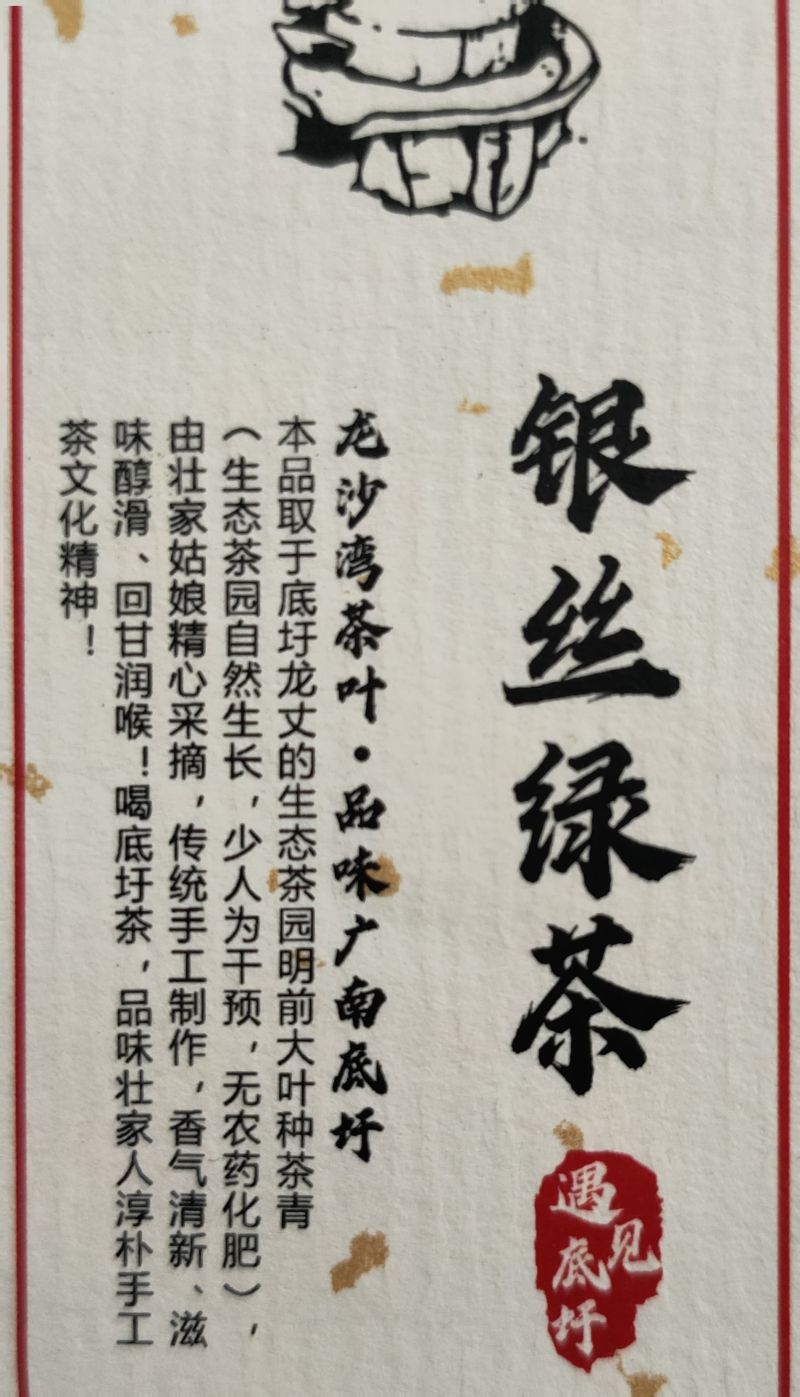 银丝绿茶
遇见
底圩
龙沙湾茶叶·品味广南底圩
本品取于底圩龙丈的生态茶园明前大叶种茶青
（生态茶园自然生长，少人为干预，无农药化肥），
由壮家姑娘精心采摘，传统手工制作，香气清新、滋
味醇滑、回甘润喉！喝底圩茶，品味壮家人淳朴手工
茶文化精神！